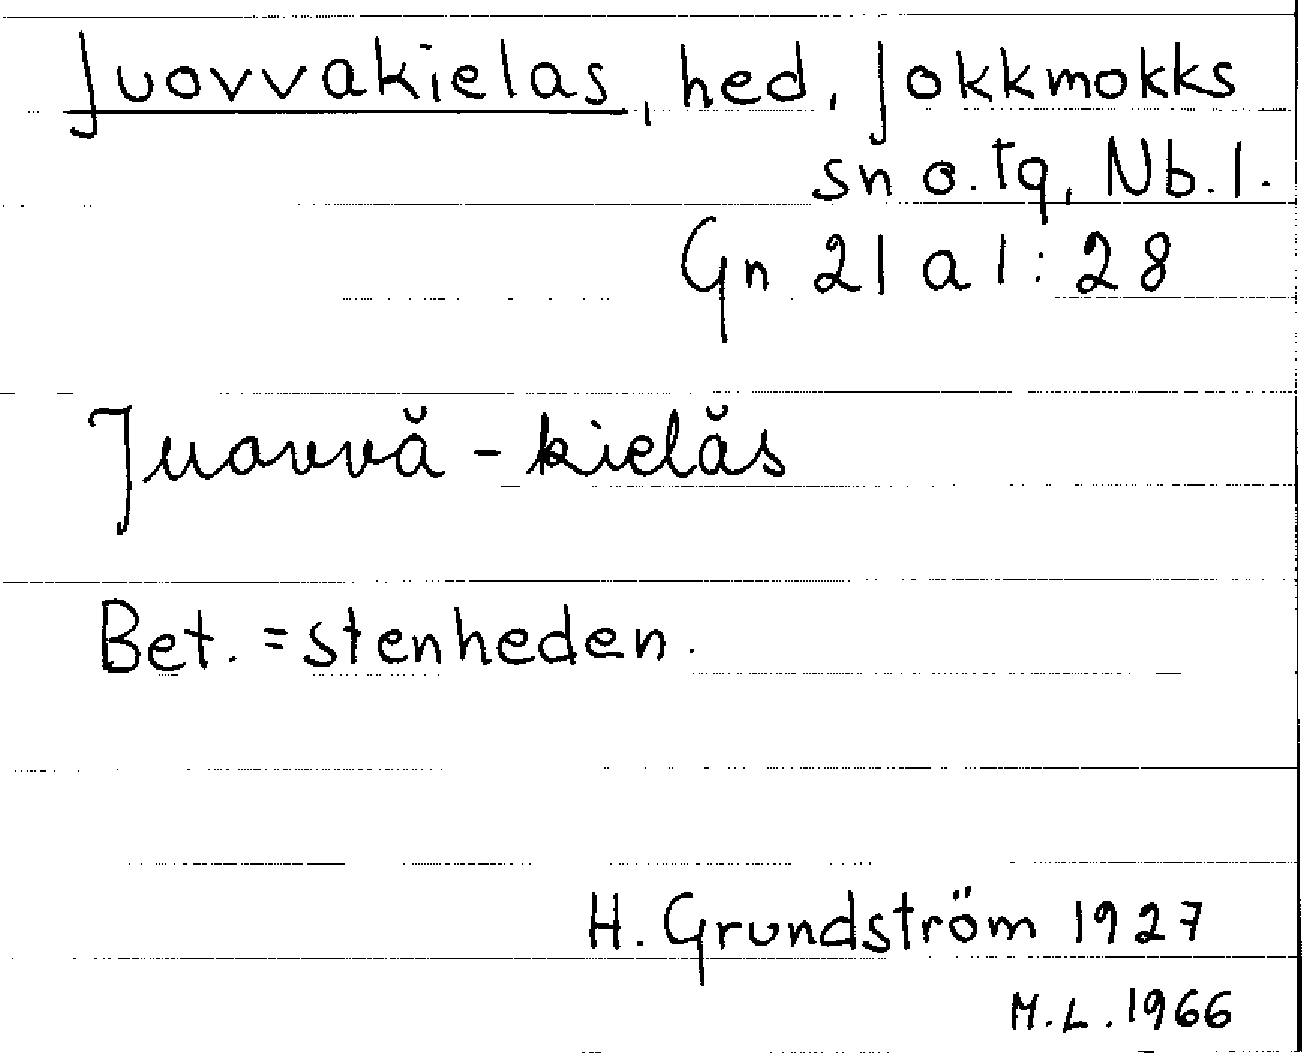 Juovvakielas, hed, Jokkmokks
sn o. tg, Nb. l.
Gn 21 a 1: 28
Juovvă - kielăs
Bet. = stenheden.
H. Grundström 1927
M.L. 1966